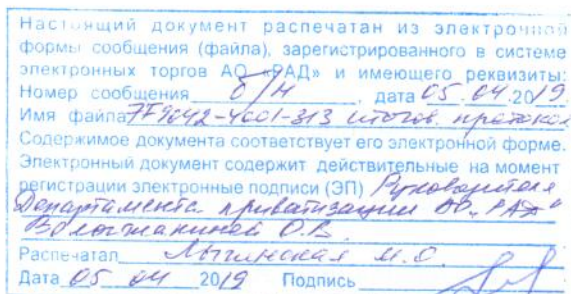 Настоящий документ распечатан из электронной
формы сообщения (файла), зарегистрированного в системе
электронных торгов АО «РАД» и имеющего реквизиты:
Номер сообщения б/н, дата 05.04.2019.
Имя файла 7F9642-4001-313 итогов. протокол
Содержимое документа соответствует его электронной форме.
Электронный документ содержит действительные на момент
регистрации электронные подписи (ЭП) Руководителя
Департамента приватизации АО "РАД"
О.В.
Распечатал М.О.
Дата 05 04 2019 Подпись